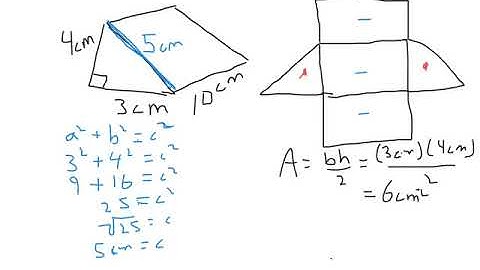 4cm
5cm
3cm
10cm
a² + b² = c²
3² + 4² = c²
9 + 16 = c²
25 = c²
√25 = c
5cm = c
A = bh/2 = (3cm)(4cm)/2
= 6cm²